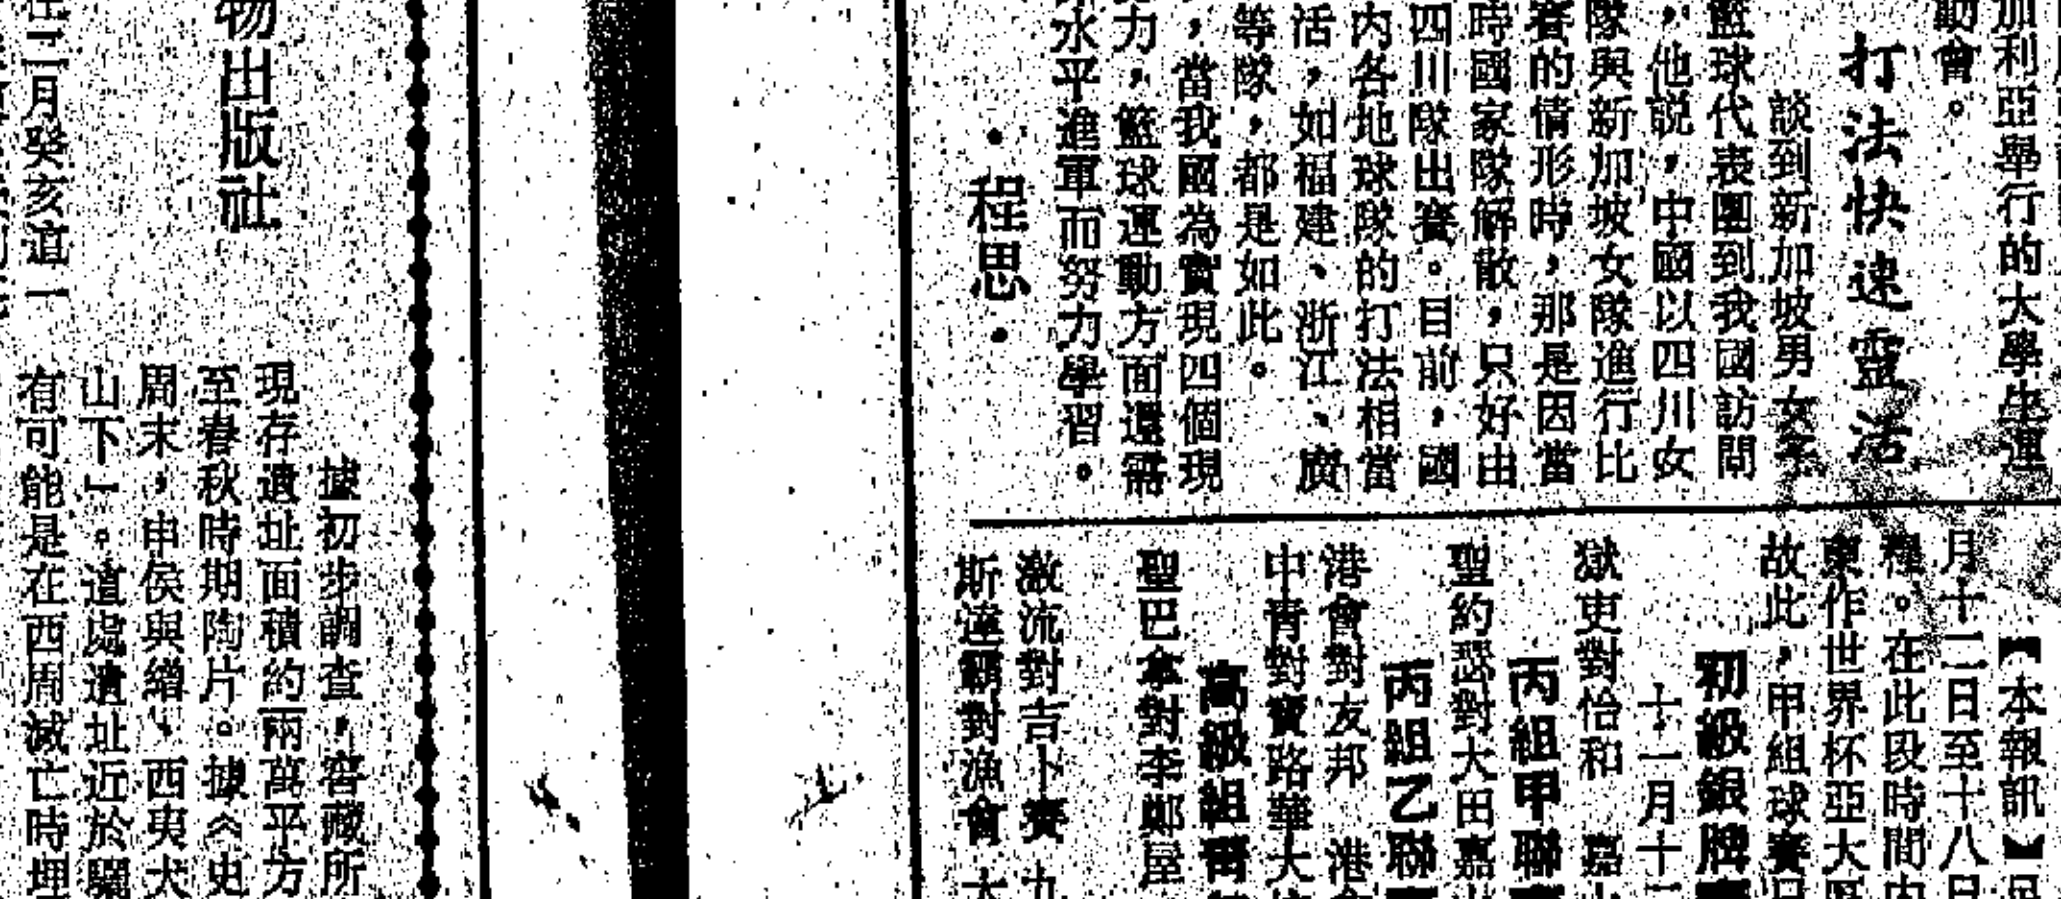 加利亞舉行的大學生運
動會。
打法快速靈活
談到新加坡男女
籃球代表團到我國訪問
，他説，中國以四川女
隊與新加坡女隊進行比
賽的情形時，那是因當
時國家隊解散，只好由
四川隊出賽。目前，國
內各地球隊的打法相當
活，如福建、浙江、廣
等隊，都是如此。
，當我國為實現四個現
力，籃球運動方面還需
水平進軍而努力學習。
·程思·
【本報訊】
月十二日至十八日
程。在此段時間內
東作世界杯亞大區
故此，甲組球賽
初級銀牌
十一月十
獄吏對怡和 嘉
丙組甲聯
聖約瑟對大田嘉
丙組乙聯
港會對友邦 港會
中青對寶路華大
高級組
聖巴拿對李鄭屋
激流對吉卜賽 九
斯達霸對漁會 大
物出版社
三月癸亥這一
據初步調查，窖藏所
現存遺址面積約兩萬平方
至春秋時期陶片。據《史
周末，申侯與繒、西夷犬
山下」。這處遺址近於驪
有可能是在西周滅亡時埋